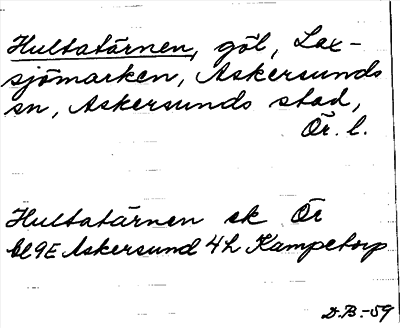 Hultatärnen, göl, Lax-
sjömarken, Askersunds
sn, Askersunds stad,
Ör. l.
Hultatärnen ek Ör
bl 9E Askersund 4h Kampetorp
D.B.-59